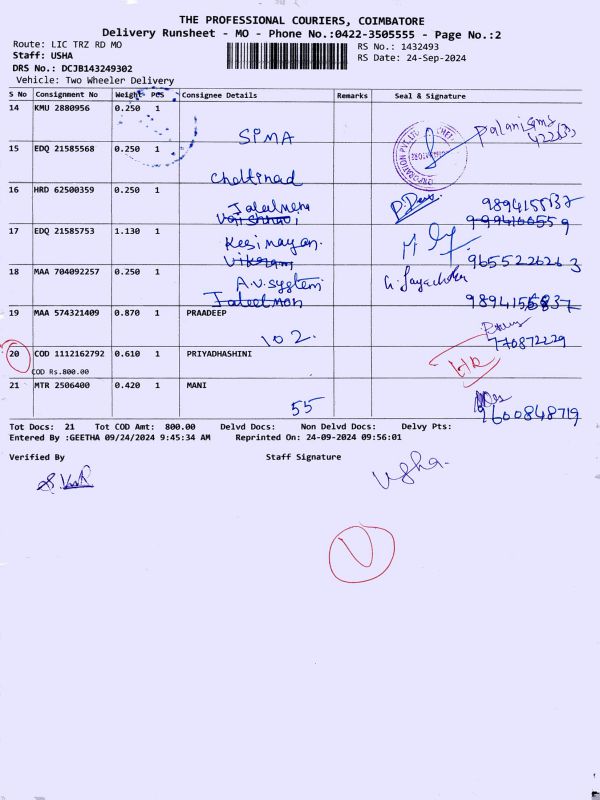 THE PROFESSIONAL COURIERS, COIMBATORE
Delivery Runsheet - MO - Phone No.:0422-3505555 - Page No.:2
Route: LIC TRZ RD MO
RS No.: 1432493
Staff: USHA
RS Date: 24-Sep-2024
DRS No.: DCJB143249302
Vehicle: Two Wheeler Delivery
S No Consignment No Weight PCS Consignee Details Remarks Seal & Signature
14 KMU 2880956 0.250 1
SIMA
15 EDQ 21585568 0.250 1
Chettinad
16 HRD 62500359 0.250 1
17 EDQ 21585753 1.130 1
Kesinayan.
9655226263
18 MAA 704092257 0.250 1
A.v.system
19 MAA 574321409 0.870 1 PRAADEEP
102.
770872229
20 COD 1112162792 0.610 1 PRIYADHASHINI
COD Rs.800.00
21 MTR 2506400 0.420 1 MANI
55
9600848719
Tot Docs: 21 Tot COD Amt: 800.00 Delvd Docs: Non Delvd Docs: Delvy Pts:
Entered By :GEETHA 09/24/2024 9:45:34 AM Reprinted On: 24-09-2024 09:56:01
Verified By Staff Signature
Usha.